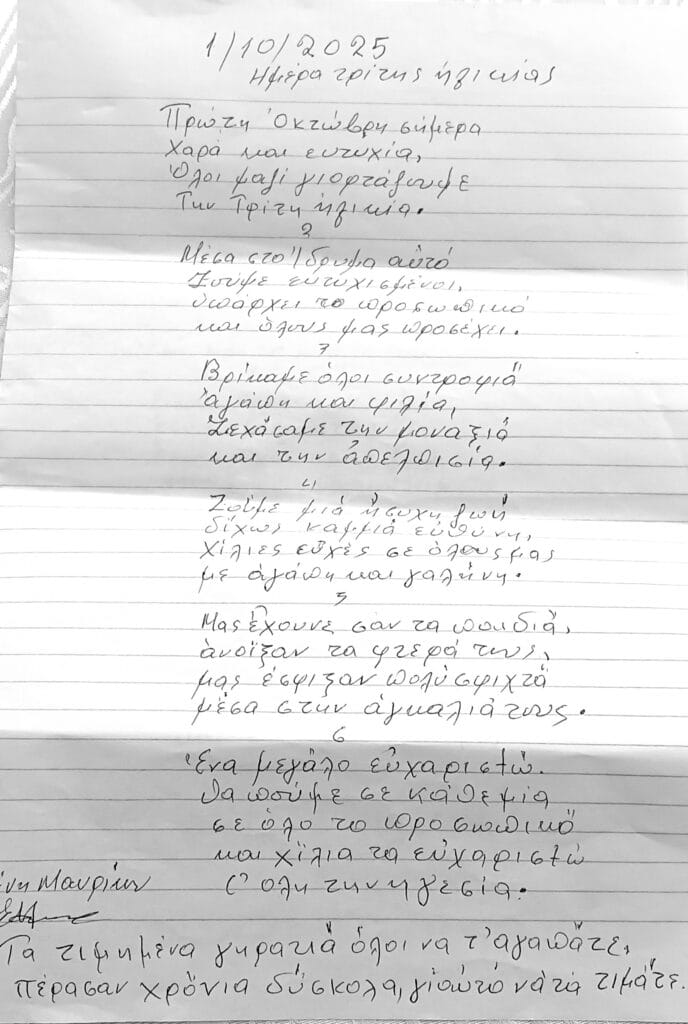 1/10/2025
Ημέρα τρίτης ἡλικίας
Πρώτη Ὀκτώβρη σήμερα
Χαρά και ευτυχία,
Ὅλοι μαζί γιορτάζουμε
Την Τρίτη ἡλικία.
2
Μέσα στο Ἵδρυμα αὐτό
Ζοῦμε ευτυχισμένοι,
ὑπάρχει το προσωπικό
και ὅλους μας προσέχει.
3
Βρίκαμε ὅλοι συντροφιά
ἀγάπη και φιλία,
Ξεχάσαμε την μοναξιά
και την ἀπελπισία.
4
Ζοῦμε μιά ἥσυχη ζωή
δίχως καμμιά εὐθύνη,
Χίλιες εὐχές σε ὅλους μας
με ἀγάπη και γαλήνη.
5
Μας ἔχουνε σαν τα παιδιά,
ἀνοίξαν τα φτερά τους,
μας ἔσφιξαν πολύ σφιχτά
μέσα στην ἀγκαλιά τους.
6
Ἕνα μεγάλο εὐχαριστῶ.
θα ποῦμε σε κάθε μία
σε ὅλο το προσωπικό
και χίλια τα εὐχαριστῶ
σ' ολη την ηγεσία.
Μαυρίκων
Τα τιμημένα γηρατιά ὅλοι να τ' αγαπᾶτε,
πέρασαν χρόνια δύσκολα, γιαὐτό νά τά τιμᾶτε.